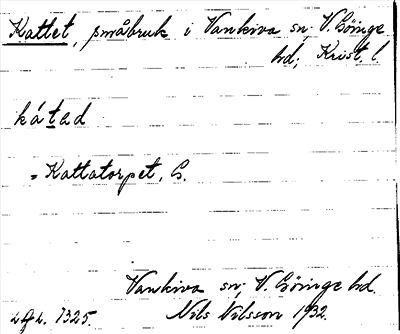 Kattet, småbruk i Vankiva sn, V. Göinge
hd, Krist. l.
kátad
= Kattatorpet, G.
Vankiva sn, V. Göinge hd.
Nils Nilsson 1932.
1325.